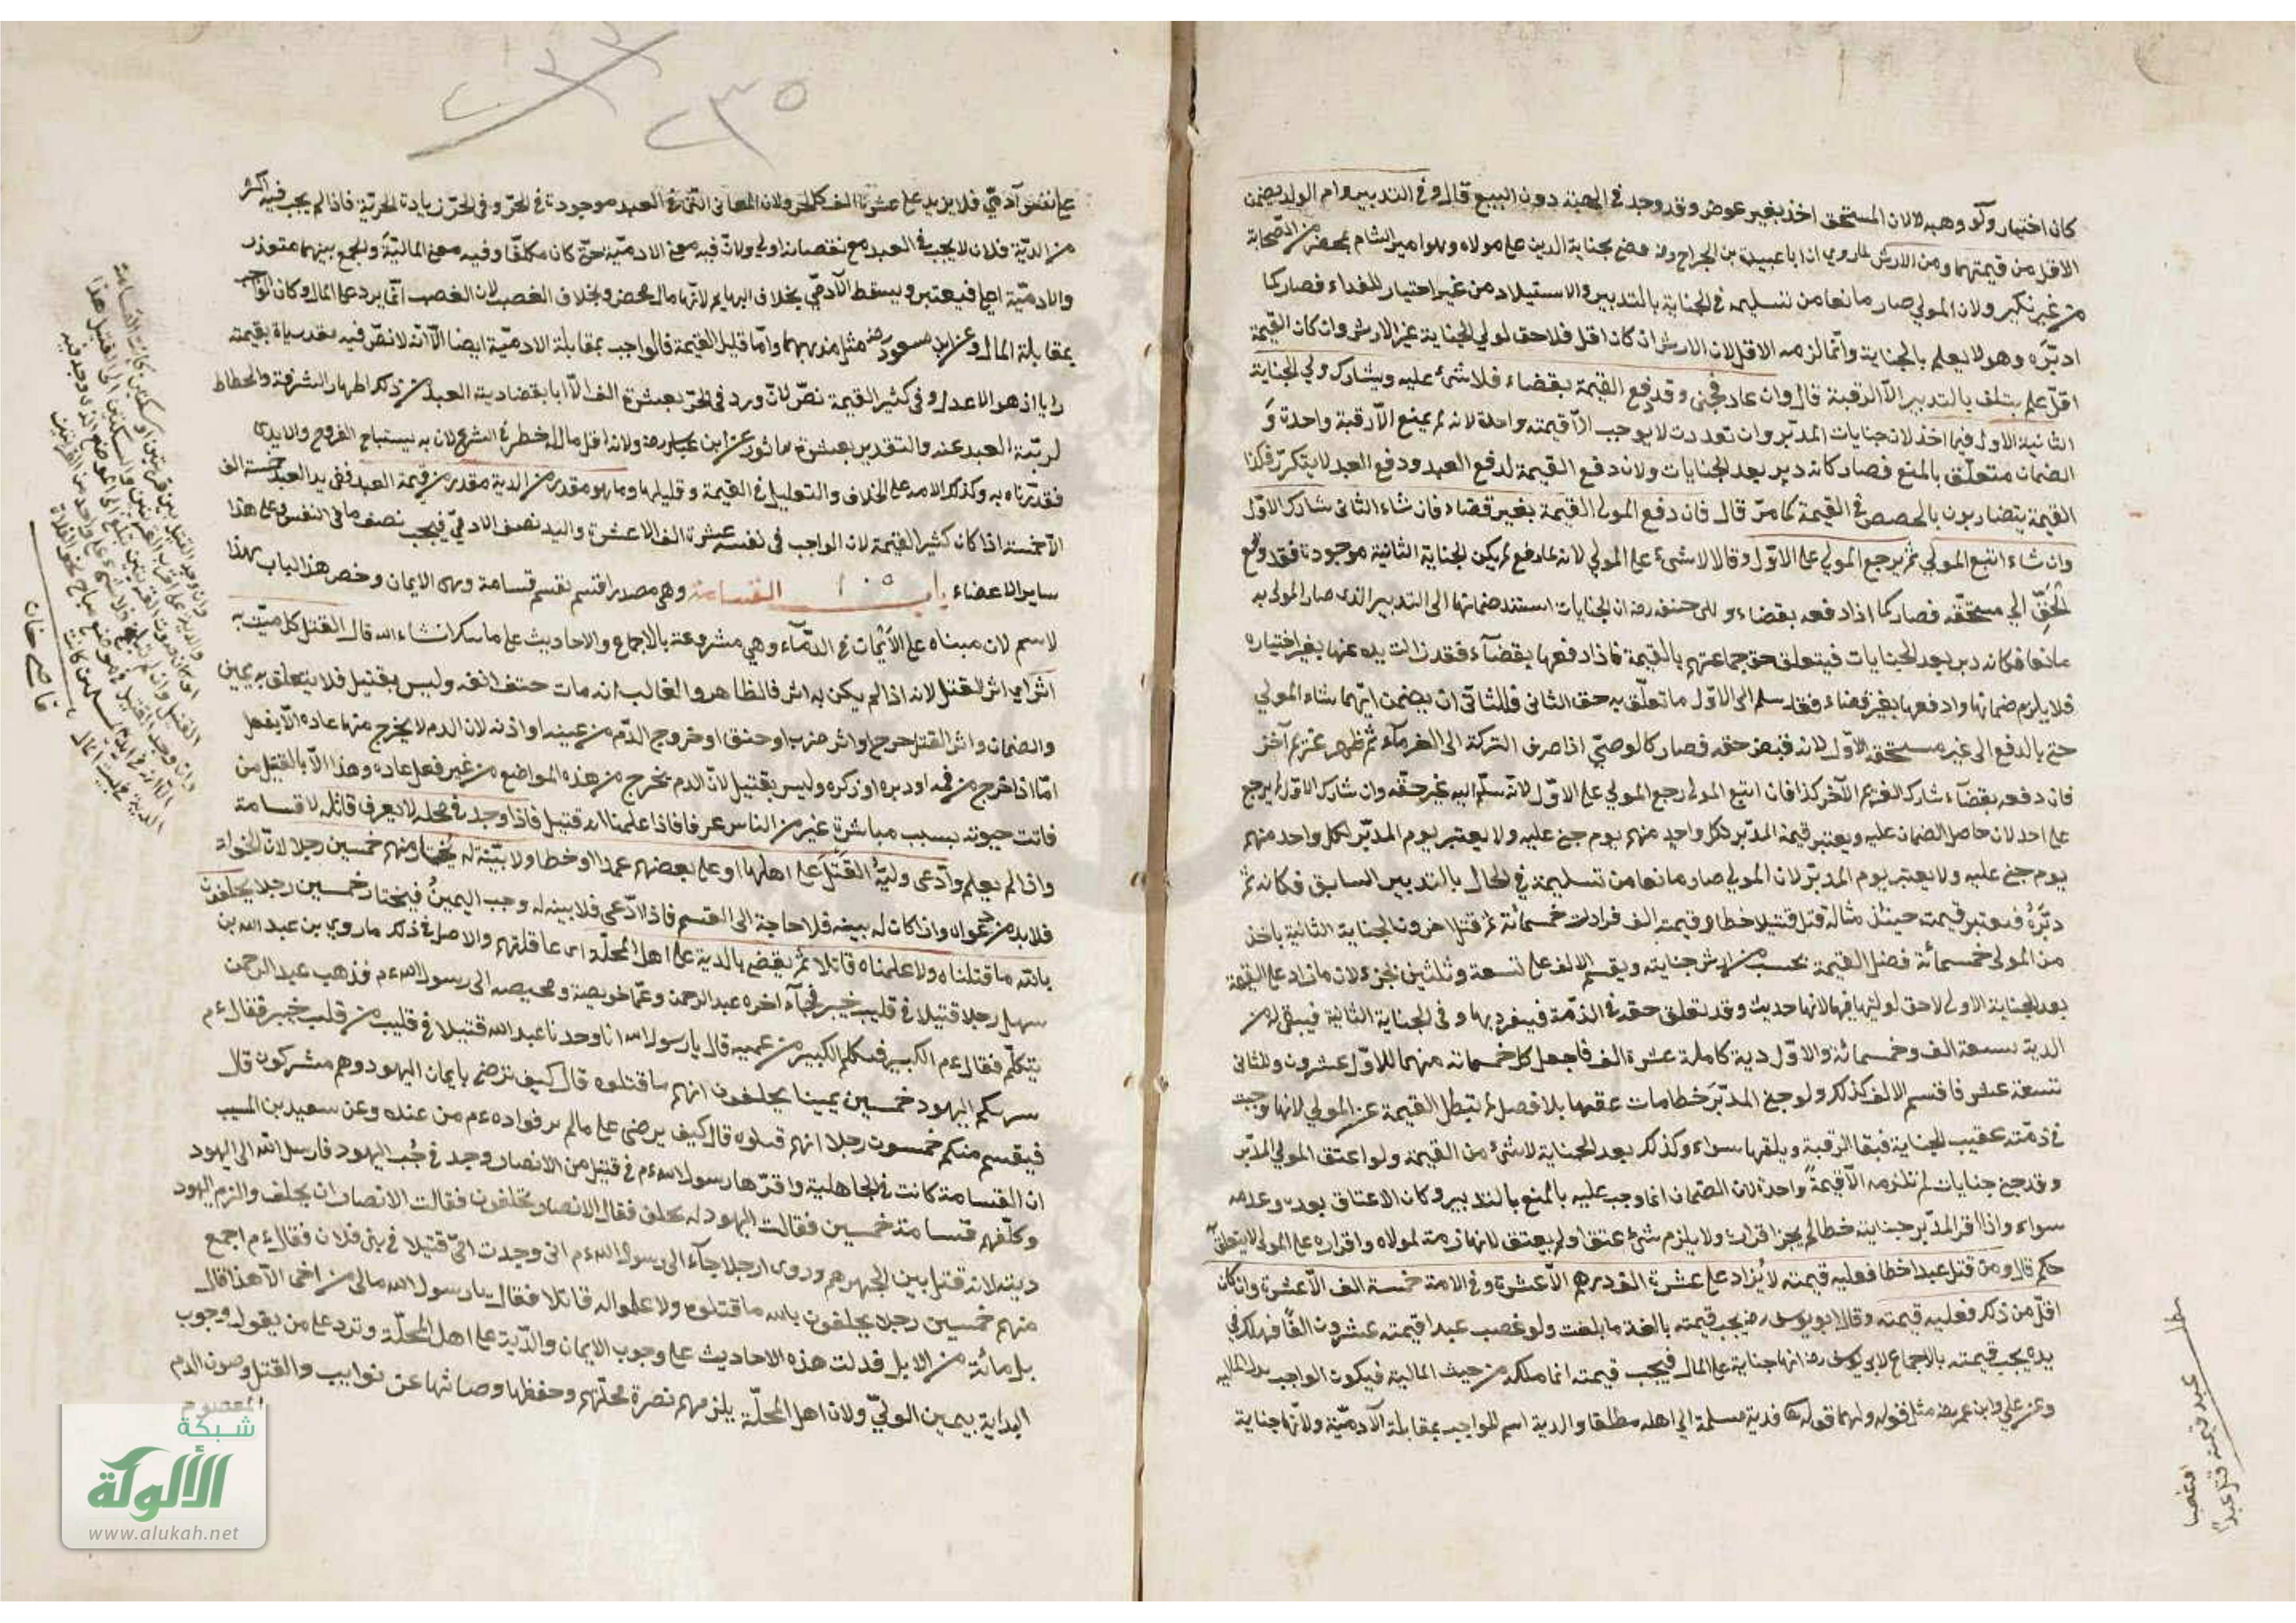 كان اختيار ولو وهبه لا لان المستحق اخذ بغير عوض وقد وجد في الهبة دون البيع قال وفي التدبير وام الولد يضمن
الاقل من قيمتهما ومن الارش لما روي ان ابا عبيدة بن الجراح رضه قضى بجناية المدبر على مولاه وهو امير الشام بمحضر من الصحابة
من غير نكير ولان المولي صار مانعا من تسليمه في الجناية بالتدبير والاستيلاد من غير اختيار للفداء فصار كما
ادبره وهو لا يعلم بالجناية وانما لزمه الاقل لان الارش ان كان اقل فلا حق لولي الجناية غير الارش وان كان القيمة
اقل علم يتلف بالتدبير الا الرقبة قال وان عاد فجنى وقد دفع القيمة بقضاء فلا شئ عليه ويشارك ولي الجناية
الثانية الاول فيما اخذ لان جنايات المدبر وان تعددت لا يوجب الا قيمة واحدة لانه لم يمنع الا رقبة واحدة و
الضمان متعلق بالمنع فصار كانه دبر بعد الجنايات ولان دفع القيمة لدفع العبد ودفع العبد لا يتكرر فكذا
القيمة يتضاربون بالحصص في القيمة كما مر قال فان دفع المولى القيمة بغير قضاء فان شاء الثاني شارك الاول
وان شاء اتبع المولي ثم يرجع المولي على الاول وقالا لا شئ على المولي لانه لما دفع لم يكن الجناية الثانية موجودة فقد دفع
الحق الي مستحقه فصار كما اذا دفعه بقضاء ولابى حنيفة رضه ان الجنايات استند ضمانها الى التدبير الذى صار المولى به
مانعا فكانه دبر بعد الجنايات فيتعلق حق جماعتهم بالقيمة فاذا دفعها بقضاء فقد زالت يده عنها بغير اختياره
فلا يلزم ضمانها واذ دفعها بغير قضاء فقد سلم الى الاول ما تعلق به حق الثاني فللثاني ان يضمن ايهما شاء المولي
حتى بالدفع الى غير مستحقه والاول لانه قبض حقه فصار كالوصي اذا صرف التركة الى الغرماء ثم ظهر غريم آخر
فان دفعه بقضاء شارك الغريم الآخر كذا فان اتبع المولى رجع المولي على الاول لانه سلم اليه غير حقه وان شارك الاول لم يرجع
على احد لان حاصل الضمان عليه ويعتبر قيمة المدبر لكل واحد منهم يوم جنى عليه ولا يعتبر يوم المدبر لكل واحد منهم
يوم جنى عليه ولا يعتبر يوم المدبر لان المولي صار مانعا من تسليمه في الحال بالتدبير السابق فكانه ثم
دبره فيعتبر قيمته حينئذ مثاله قتل قتيلا خطا وقيمته الف فزادت خمسمائة ثم قتل اخر ولى الجناية الثانية ياخذ
من المولى خمسمائة فضل القيمة يحسب من ارش جنايته ويقسم الالف على تسعة وثلثين جزء لان ما زاد على القيمة
بعد الجناية الاولى لا حق لوليها فيها لانها حديث وقد تعلق حقه في الذمة فينفرد بها و في الجناية الثانية فيبقى له من
الدية تسعة الف وخمسمائة والاول دية كاملة عشرة الف فاجعل كل خمسمائة منهما للاول عشرون وللثاني
تسعة عشر فاقسم الالف كذلك ولو جنى المدبر خطا مات عقيبها بلا فصل لم تبطل القيمة عن المولي لانها وجبت
في ذمته عقيب الجناية فبقا الرقبة وتلفها سواء وكذلك بعد الجناية لا شئ من القيمة ولو اعتق المولي المدبر
وقد جنى جنايات لم تلزمه الا قيمة واحدة لان الضمان انما وجب عليه بالمنع بالتدبير وكان الاعتاق بعده وعدمه
سواء واذا اقر المدبر بجناية خطا لم يجز اقراره ولا يلزم شئ عتق او لم يعتق لانها لازمة لمولاه واقراره على المولي لا يتعلق
حكم قال ومن قتل عبدا خطا فعليه قيمته لا يزاد على عشرة الف درهم الا عشرة وفي الامة خمسة الف الا عشرة وان كان
اقل من ذلك فعليه قيمته وقال ابو يوسف رضه يجب قيمته بالغة ما بلغت ولو غصب عبدا قيمته عشرون الفا فهلك في
يده يجب قيمته بالاجماع لابي يوسف رضه انها جناية على المال فيجب قيمته انما ملكه من حيث المالية فيكون الواجب بدل المالية
وعن علي وابن عمر رضه مثل قوله ولهما قوله تعالى فدية مسلمة الي اهله مطلقا والدية اسم للواجب بمقابلة الآدمية ولانها جناية
عبد قيمته
قتل عبدا
او غصب
٢٣٥
على نفس آدمي فلا يزيد على عشرة الف كالحر ولان المعاني التي في العبد موجودة في الحر وفي الحر زيادة الحرية فاذا لم يجب فيه اكثر
من الدية فلان لا يجب في العبد مع نقصانه اولى ولان فيه معنى الادمية حتى كان مكلفا وفيه معنى المالية والجمع بينهما متعذر
والادمية اعلى فيعتبر ويسقط الآدمي بخلاف البهايم لانها مال محض وبخلاف الغصب لان الغصب انما يرد على المال وكان الواجب
بمقابلة المال وعن ابن مسعود رضه مثل مذهبهما واما قليل القيمة فالواجب بمقابلة الادمية ايضا الا انه لا نص فيه مقدرناه بقيمته
رايا اذ هو الاعدل وفي كثير القيمة نص لان ورد في الحر بعشرة الف الا ابا بقضا دية العبد من ذلك اظهار الشرفة وانحطاط
لرتبة العبد عنه والتقدير بعشرة ماثور عن ابن عباس رضه ولانه اقل مال له خطر في الشرع لان به يستباح الفروج والايدى
فقدرناه به وكذلك الامة على الخلاف والتعليل في القيمة وقليلها وما هو مقدر من الدية مقدر من قيمة العبد ففي يد العبد خمسة الف
الا خمسة اذا كان كثير القيمة لان الواجب في نفسه عشرة الف الا عشرة واليد نصف الادمي فيجب نصف ما في النفس وعلى هذا
ساير الاعضاء باب القسامة وهي مصدر اقسم يقسم قسامة وهى الايمان وخص هذا الباب بهذا
لاسم لان مبناه على الايمان في الدماء وهي مشروعة بالاجماع والاحاديث على ما ... انشاء الله قال القتيل كل ميت به
اثر اي اثر القتل لانه اذا لم يكن به اثر فالظاهر والغالب انه مات حتف انفه وليس بقتيل فلا يتعلق به يمين
والضمان واثر القتل جرح او اثر ضرب او خنق او خروج الدم من عينه او اذنه لان الدم لا يخرج منها عادة الا بفعل
امّا اذا خرج من فمه او دبره او ذكره وليس بقتيل لان الدم يخرج من هذه المواضع من غير فعل عادة وهذا الا بالقتيل من
فاتت حيوته بسبب مباشرة غير من الناس عرفا فاذا علمنا انه قتيل فاذا وجد في محلة لا يعرف قاتله لا قسامة
واذا لم يعلم وادعى وليه القتل على اهلها او على بعضهم عمدا او خطا ولا بينة له يختار منهم خمسين رجلا لان ...
فلا بد من دعواه واذ كان له بينة فلا حاجة الى القسم فاذا ادعى فلا بينة له وجب اليمين فيختار خمسين رجلا يحلفون
بالله ما قتلناه ولا علمنا له قاتلا ثم يقضى بالدية على اهل المحلة اى عاقلتهم والاصل في ذلك ما روي بن عبد الله بن
سهل رجلا قتيلا في قليب خيبر فجاء اخوه عبد الرحمن وعماه حويصة ومحيصة الى رسول الله ءم فذهب عبد الرحمن
يتكلم فقال ءم الكبير فتكلم الكبير من عميه قال يا رسول الله انا وجدنا عبد الله قتيلا في قليب من قلب خيبر فقال ءم
... اليهود خمسين يمينا يحلفون انهم ما قتلوه قال كيف نرضى بايمان اليهود وهم مشركون قال
فيقسم منكم خمسون رجلا انهم قتلوه قال كيف يرضى على مالم ير فواده ءم من عنده وعن سعيد بن المسيب
ان القسامة كانت في الجاهلية واقرها رسول الله ءم في قتيل من الانصار وجد في جب اليهود فارسل الله الى اليهود
وكلفهم قسامة خمسين فقالت اليهود له يحلف فقال الانصار تحلفون فقالت الانصار ان يحلف والزم اليهود
ديته لانه قتل بين اظهرهم وروى ان رجلا جاء الى رسول الله ءم انى وجدت اخي قتيلا في بنى فلان فقال ءم اجمع
منهم خمسين رجلا يحلفون بالله ما قتلوه ولا علموا له قاتلا فقال يا رسول الله مالى من اخى الا هذا قال
بل مائة من الابل فدلت هذه الاحاديث على وجوب الايمان والدية على اهل المحلة وترد على من يقول وجوب
البداية بيمين الولي ولان اهل المحلة يلزمهم نصرة محلتهم وحفظها وصيانتها عن نوايب والقتل وصون الدم
المعصوم
قاضي خان
شبكة
الألوكة
www.alukah.net